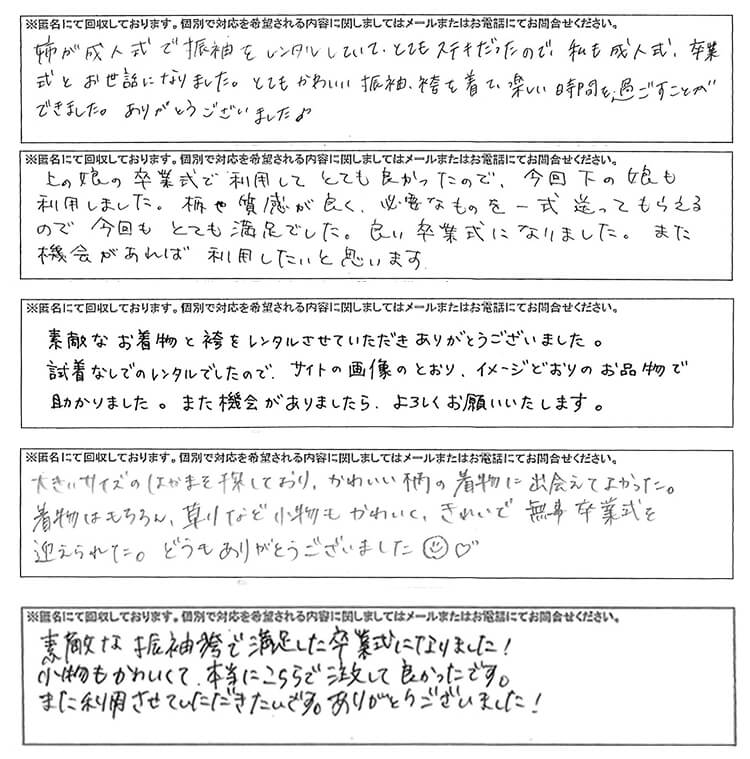 ※匿名にて回収しております。個別で対応を希望される内容に関しましてはメールまたはお電話にてお問合せください。
姉が成人式で振袖をレンタルしていて、とてもステキだったので、私も成人式、卒業
式とお世話になりました。とてもかわいい振袖、袴を着て、楽しい時間を過ごすことが
できました。ありがとうございました♪
※匿名にて回収しております。個別で対応を希望される内容に関しましてはメールまたはお電話にてお問合せください。
上の娘の卒業式で利用してとても良かったので、今回下の娘も
利用しました。柄や質感が良く、必要なものを一式送ってもらえる
ので今回もとても満足でした。良い卒業式になりました。また
機会があれば利用したいと思います
※匿名にて回収しております。個別で対応を希望される内容に関しましてはメールまたはお電話にてお問合せください。
素敵なお着物と袴をレンタルさせていただきありがとうございました。
試着なしでのレンタルでしたので、サイトの画像のとおり、イメージどおりのお品物で
助かりました。また機会がありましたら、よろしくお願いいたします。
※匿名にて回収しております。個別で対応を希望される内容に関しましてはメールまたはお電話にてお問合せください。
大きいサイズのはかまを探しており、かわいい柄の着物に出会えてよかった。
着物はもちろん、草りなど小物もかわいく、きれいで無事卒業式を
迎えられた。どうもありがとうございました☺♡
※匿名にて回収しております。個別で対応を希望される内容に関しましてはメールまたはお電話にてお問合せください。
素敵な振袖袴で満足した卒業式になりました!
小物もかわいくて、本当にこちらで注文して良かったです。
また利用させていただきたいです。ありがとうございました!